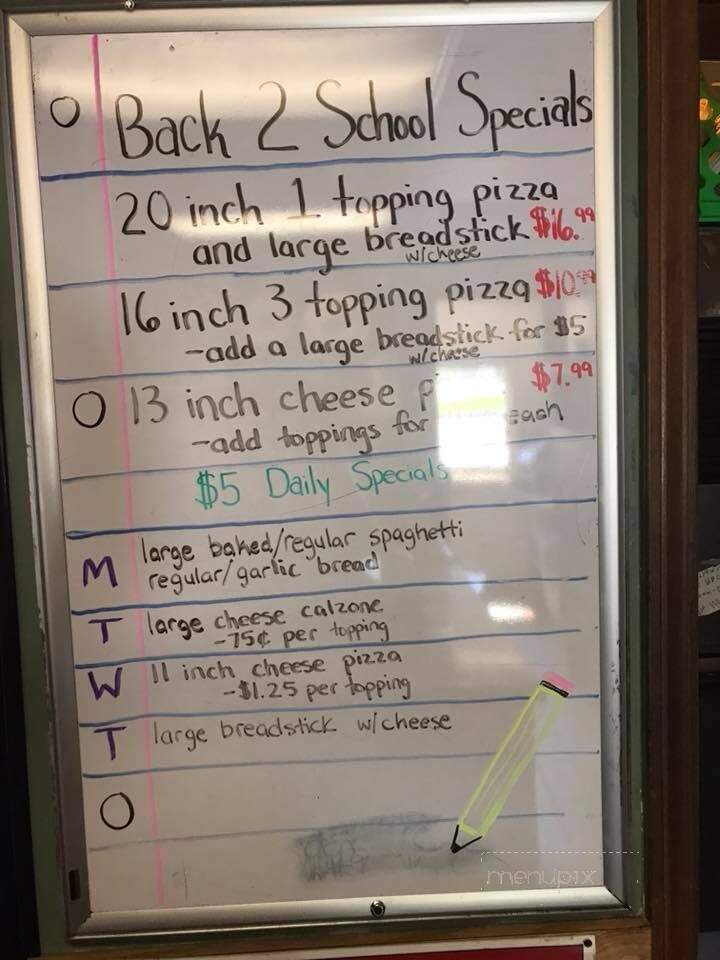 Back 2 School Specials
20 inch 1 topping pizza
and large breadstick $16.99
w/cheese
16 inch 3 topping pizza $10.99
-add a large breadstick for $5
w/cheese
13 inch cheese $7.99
-add toppings for each
$5 Daily Specials
M large baked/regular spaghetti
regular/garlic bread
T large cheese calzone
-75¢ per topping
W 11 inch cheese pizza
-$1.25 per topping
T large breadstick w/cheese
menupix